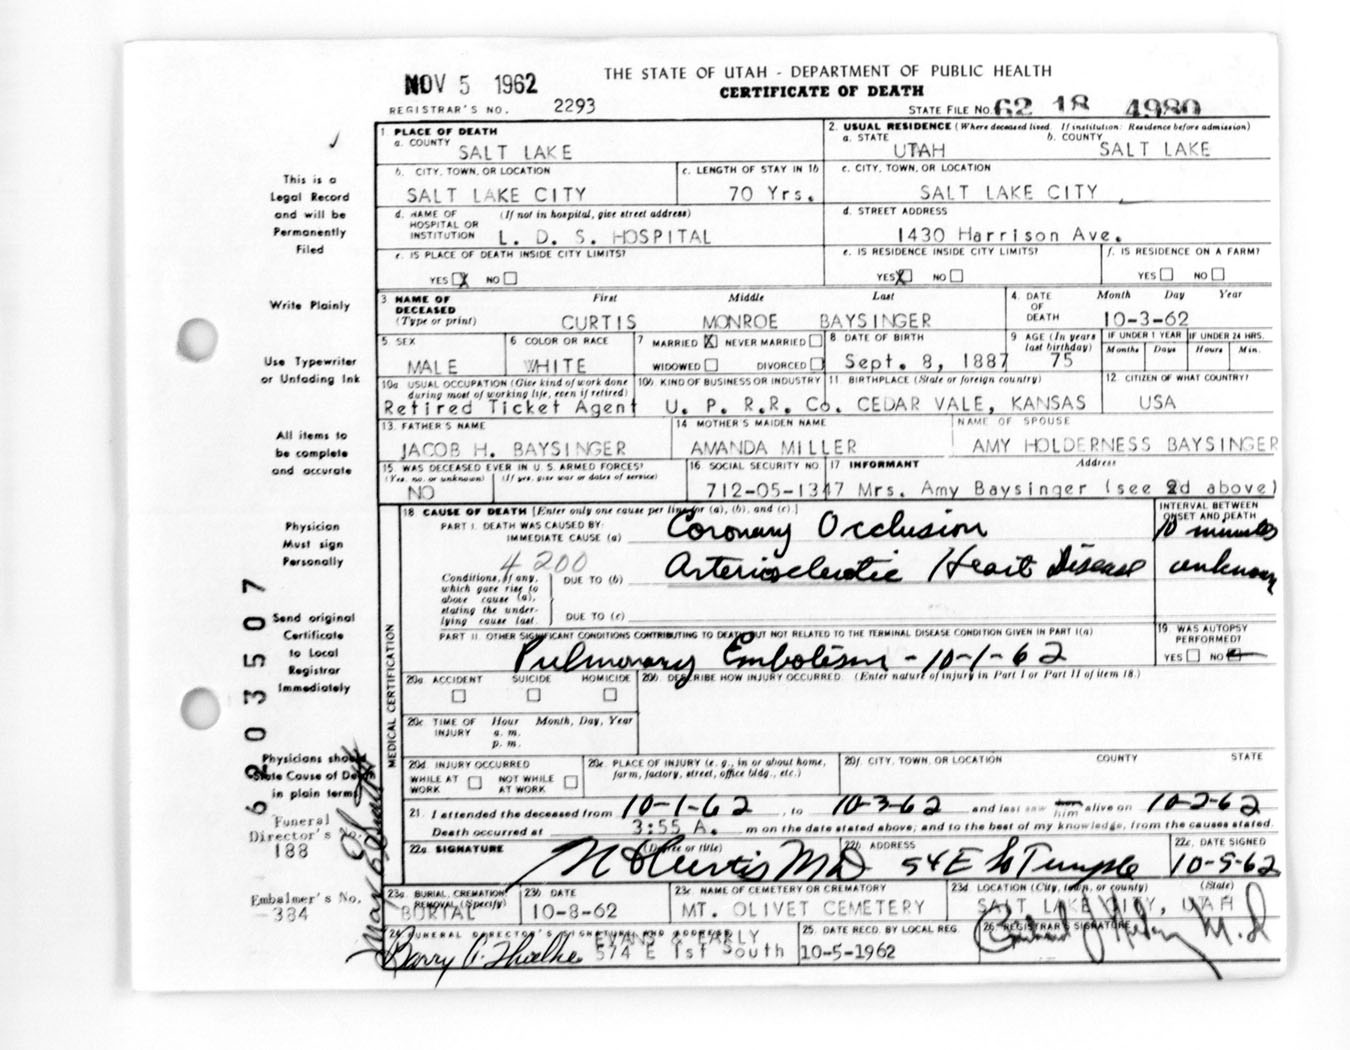 NOV 5 1962
THE STATE OF UTAH - DEPARTMENT OF PUBLIC HEALTH
CERTIFICATE OF DEATH
REGISTRAR'S NO. 2293
STATE FILE NO. 62 18 4980
1. PLACE OF DEATH
a. COUNTY SALT LAKE
2. USUAL RESIDENCE (Where deceased lived. If institution: Residence before admission)
a. STATE UTAH b. COUNTY SALT LAKE
b. CITY, TOWN, OR LOCATION SALT LAKE CITY
c. LENGTH OF STAY IN 1b 70 Yrs.
c. CITY, TOWN, OR LOCATION SALT LAKE CITY
d. NAME OF HOSPITAL OR INSTITUTION (If not in hospital, give street address) L. D. S. HOSPITAL
d. STREET ADDRESS 1430 Harrison Ave.
e. IS PLACE OF DEATH INSIDE CITY LIMITS?
YES X NO
e. IS RESIDENCE INSIDE CITY LIMITS?
YES X NO
f. IS RESIDENCE ON A FARM?
YES NO
3. NAME OF DECEASED (Type or print)
First Middle Last
CURTIS MONROE BAYSINGER
4. DATE OF DEATH Month Day Year
10-3-62
5. SEX MALE
6. COLOR OR RACE WHITE
7. MARRIED X NEVER MARRIED
WIDOWED DIVORCED
8. DATE OF BIRTH Sept. 8, 1887
9. AGE (In years last birthday) 75
IF UNDER 1 YEAR Months Days
IF UNDER 24 HRS. Hours Min.
10a. USUAL OCCUPATION (Give kind of work done during most of working life, even if retired)
Retired Ticket Agent
10b. KIND OF BUSINESS OR INDUSTRY
U. P. R.R. Co.
11. BIRTHPLACE (State or foreign country)
CEDAR VALE, KANSAS
12. CITIZEN OF WHAT COUNTRY?
USA
13. FATHER'S NAME
JACOB H. BAYSINGER
14. MOTHER'S MAIDEN NAME
AMANDA MILLER
NAME OF SPOUSE
AMY HOLDERNESS BAYSINGER
15. WAS DECEASED EVER IN U. S. ARMED FORCES?
(Yes, no, or unknown) (If yes, give war or dates of service)
NO
16. SOCIAL SECURITY NO.
712-05-1347
17. INFORMANT Address
Mrs. Amy Baysinger (see 2d above)
18. CAUSE OF DEATH [Enter only one cause per line for (a), (b), and (c).]
INTERVAL BETWEEN ONSET AND DEATH
PART I. DEATH WAS CAUSED BY:
IMMEDIATE CAUSE (a) Coronary Occlusion 10 minutes
4200
Conditions, if any, which gave rise to above cause (a), stating the underlying cause last.
DUE TO (b) Arteriosclerotic Heart Disease unknown
DUE TO (c)
PART II. OTHER SIGNIFICANT CONDITIONS CONTRIBUTING TO DEATH BUT NOT RELATED TO THE TERMINAL DISEASE CONDITION GIVEN IN PART I(a)
Pulmonary Embolism - 10-1-62
19. WAS AUTOPSY PERFORMED?
YES NO
20a. ACCIDENT SUICIDE HOMICIDE
20b. DESCRIBE HOW INJURY OCCURRED. (Enter nature of injury in Part I or Part II of item 18.)
20c. TIME OF INJURY Hour Month, Day, Year
a. m.
p. m.
20d. INJURY OCCURRED
WHILE AT WORK NOT WHILE AT WORK
20e. PLACE OF INJURY (e. g., in or about home, farm, factory, street, office bldg., etc.)
20f. CITY, TOWN, OR LOCATION COUNTY STATE
21. I attended the deceased from 10-1-62, to 10-3-62 and last saw him alive on 10-2-62
Death occurred at 3:55 A. m on the date stated above; and to the best of my knowledge, from the causes stated.
22a. SIGNATURE (Degree or title)
N D Curtis MD
22b. ADDRESS
54 E So Temple
22c. DATE SIGNED
10-5-62
23a. BURIAL, CREMATION, REMOVAL (Specify)
BURIAL
23b. DATE
10-8-62
23c. NAME OF CEMETERY OR CREMATORY
MT. OLIVET CEMETERY
23d. LOCATION (City, town, or county) (State)
SALT LAKE CITY, UTAH
24. FUNERAL DIRECTOR'S SIGNATURE AND ADDRESS
EVANS & EARLY
574 E 1st South
25. DATE RECD. BY LOCAL REG.
10-5-1962
26. REGISTRAR'S SIGNATURE
M.D
MEDICAL CERTIFICATION
This is a
Legal Record
and will be
Permanently
Filed
Write Plainly
Use Typewriter
or Unfading Ink
All items to
be complete
and accurate
Physician
Must sign
Personally
Send original
Certificate
to Local
Registrar
Immediately
Physicians should
State Cause of Death
in plain terms
Funeral
Director's No.
188
Embalmer's No.
384
6203507